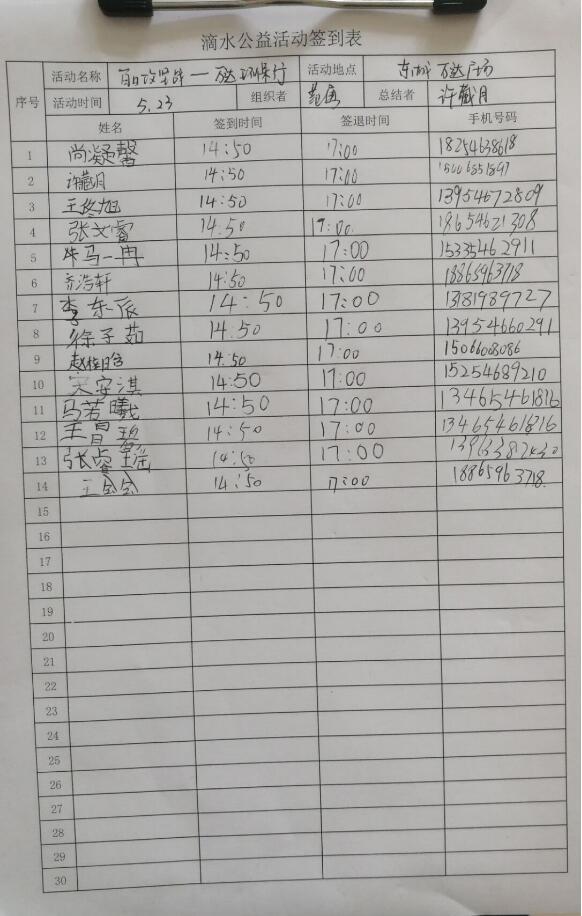 滴水公益活动签到表
序号 活动名称 百日攻坚战—万达环保行 活动地点 东城万达广场
活动时间 5.23 组织者 总结者 许藏月
姓名 签到时间 签退时间 手机号码
1 尚凝馨 14:50 17:00 18254638618
2 许藏月 14:50 17:00
3 王佟旭 14:50 17:00 13954672809
4 张文睿 14:50 17:00 18654621308
5 牛马一冉 14:50 17:00 15335462911
6 乔浩轩 14:50 17:00 18865963718
7 李东辰 14:50 17:00 13181989727
8 徐子茹 14:50 17:00 13954660291
9 14:50 17:00 15066008086
10 宋安淇 14:50 17:00 15254689210
11 马若曦 14:50 17:00 13465461816
12 14:50 17:00 13465461816
13 张睿瑶 14:50 17:00
14 王会会 14:50 17:00 18865963718
15
16
17
18
19
20
21
22
23
24
25
26
27
28
29
30